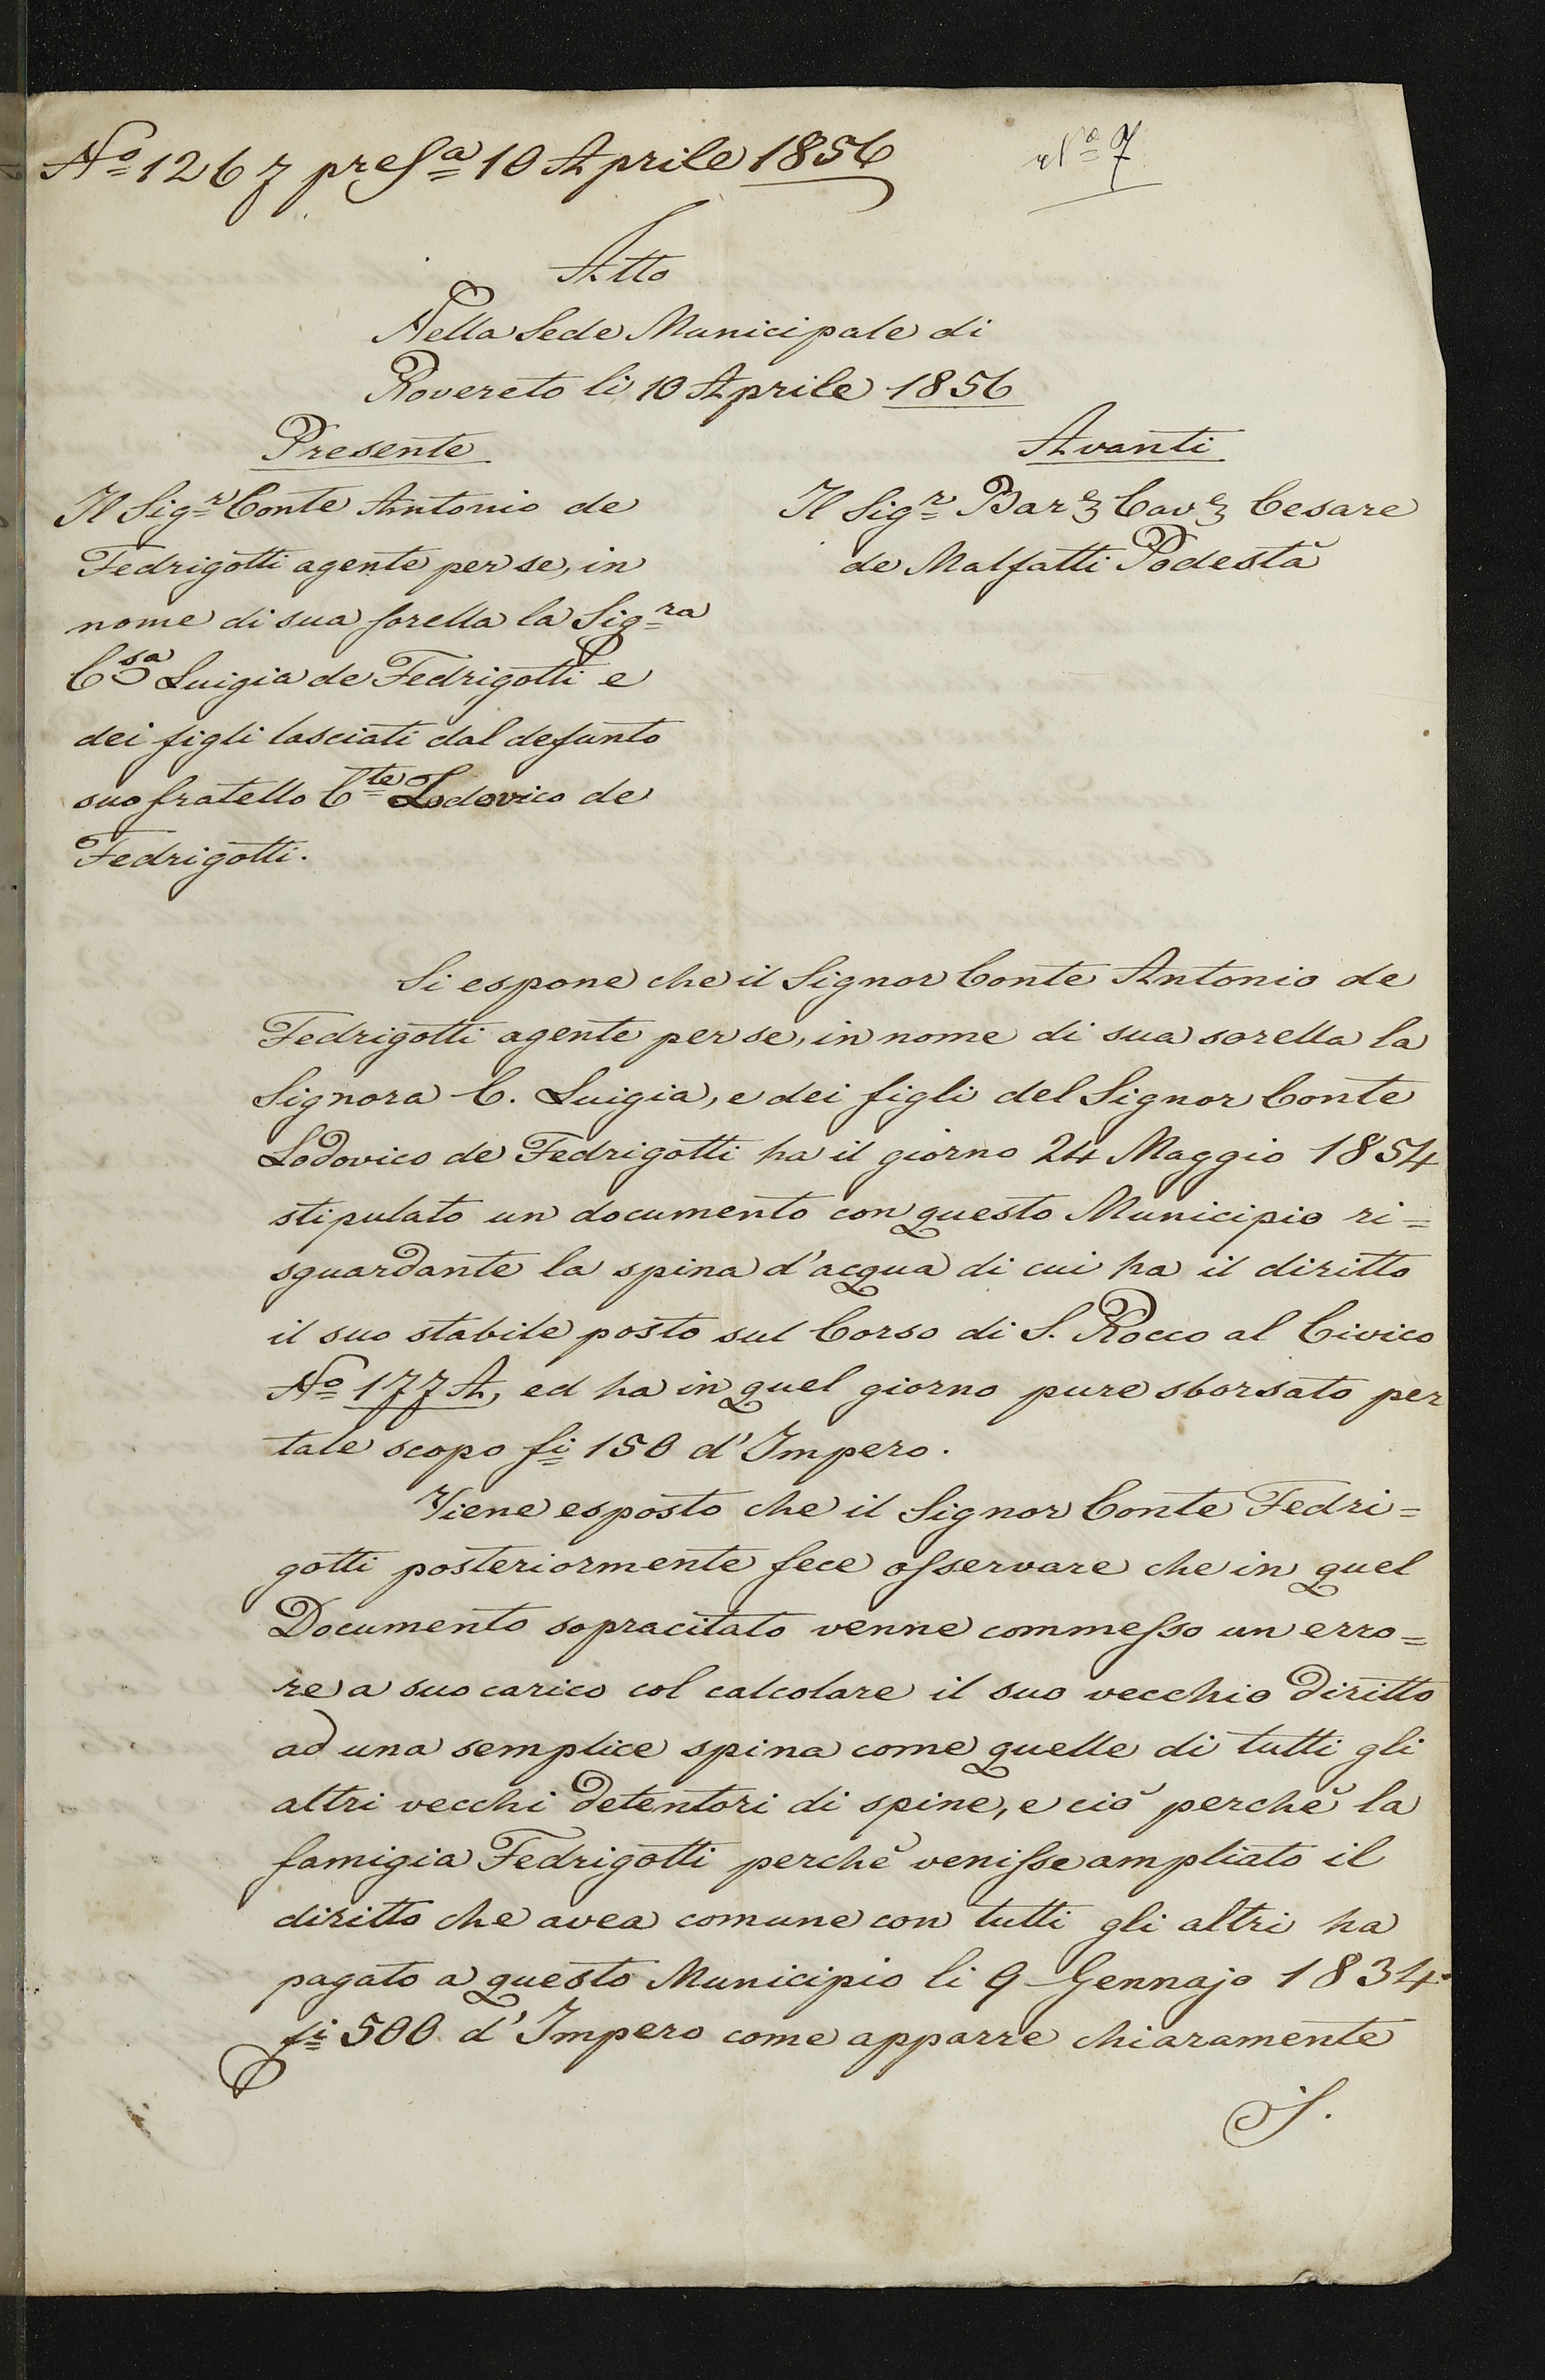 Nº 1267 pres.ª 10 Aprile 1856
Nº 7
Atto
Nella Sede Municipale di
Rovereto li 10 Aprile 1856
Presente
Il Sig.r Conte Antonio de
Fedrigotti agente per se, in
nome di sua sorella la Sig.ra
C.sa Luigia de Fedrigotti e
dei figli lasciati dal defunto
suo fratello C.te Lodovico de
Fedrigotti.
Avanti
Il Sig.r Bar.e Cav.e Cesare
de Malfatti Podestà
Si espone che il Signor Conte Antonio de
Fedrigotti agente per se, in nome di sua sorella la
Signora C. Luigia, e dei figli del Signor Conte
Lodovico de Fedrigotti ha il giorno 24 Maggio 1854
stipulato un documento con questo Municipio ri=
sguardante la spina d'acqua di cui ha il diritto
il suo stabile posto sul Corso di S. Rocco al Civico
Nº 177 A, ed ha in quel giorno pure sborsato per
tale scopo fi 150 d'Impero.
Viene esposto che il Signor Conte Fedri=
gotti posteriormente fece osservare che in quel
Documento sopracitato venne commesso un erro=
re a suo carico col calcolare il suo vecchio diritto
ad una semplice spina come quelle di tutti gli
altri vecchi detentori di spine, e ciò perchè la
famigia Fedrigotti perchè venisse ampliato il
diritto che avea comune con tutti gli altri ha
pagato a questo Municipio li 9 Gennajo 1834
fi 500 d'Impero come apparre chiaramente